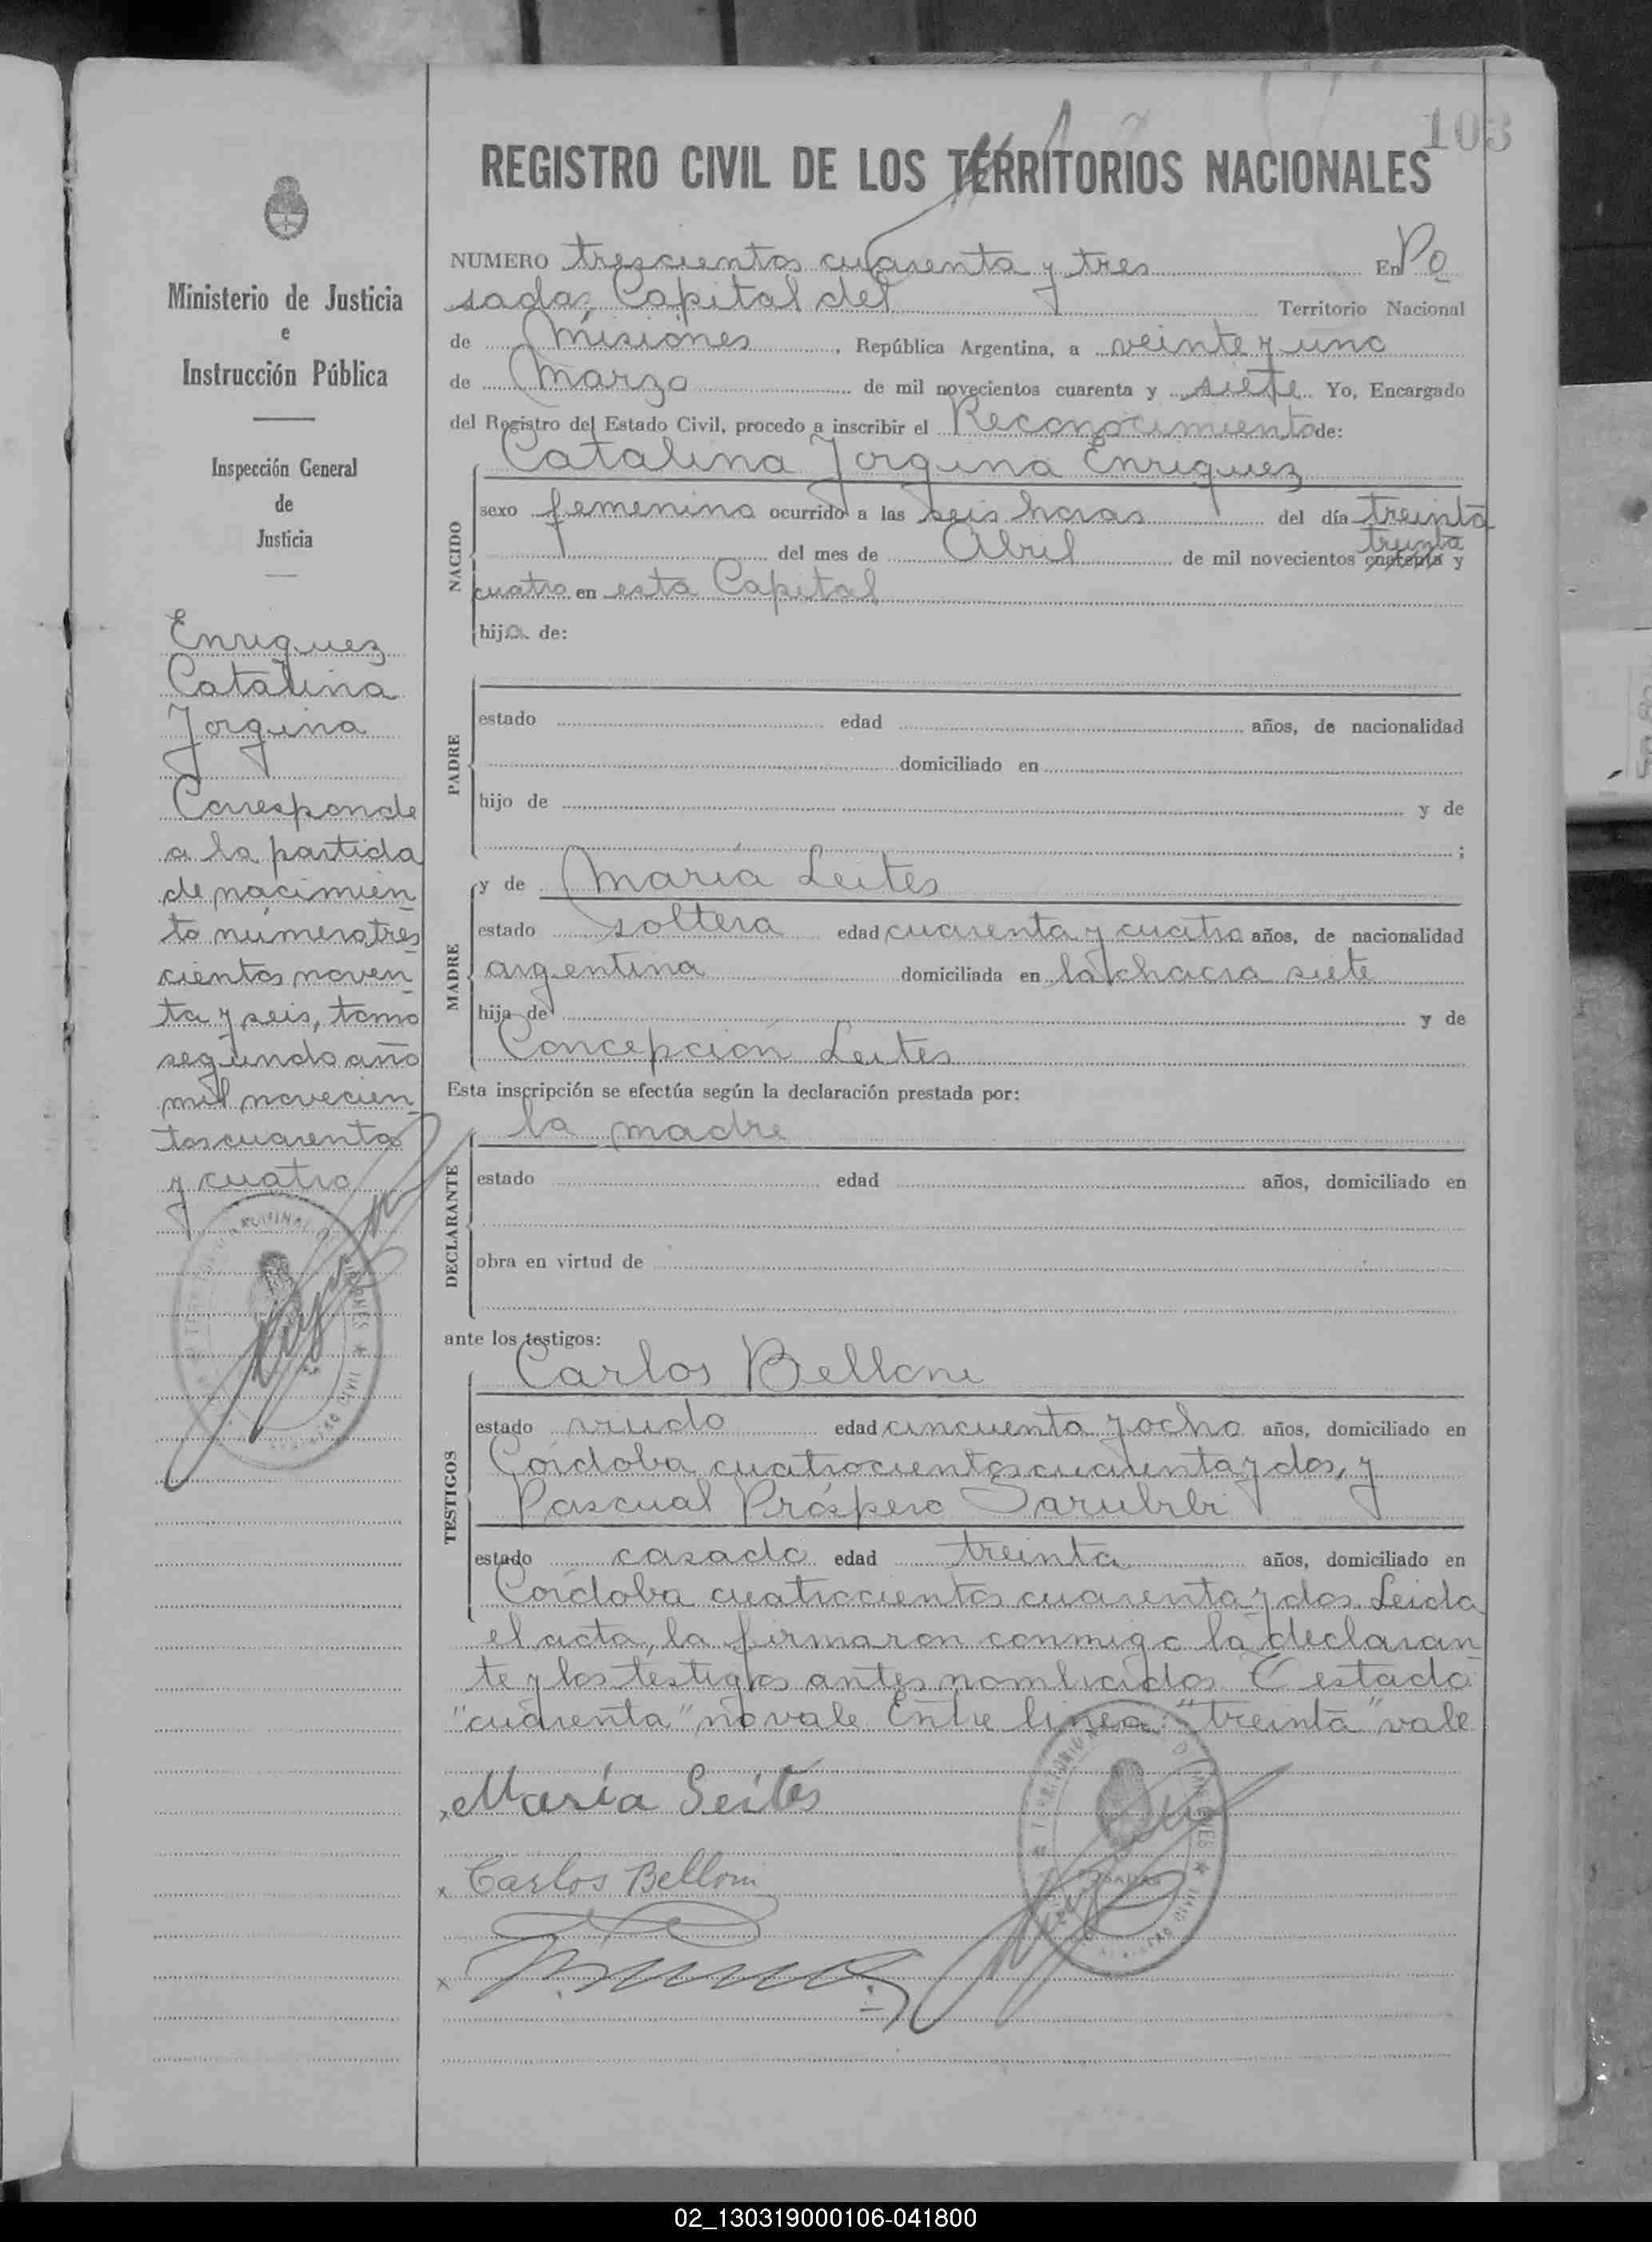 103
REGISTRO CIVIL DE LOS TERRITORIOS NACIONALES
NUMERO trescientos cuarenta y tres En Po
sadas, Capital del Territorio Nacional
de Misiones, República Argentina, a veinte y uno
de Marzo de mil novecientos cuarenta y siete Yo, Encargado
del Registro del Estado Civil, procedo a inscribir el Reconocimiento de:
Catalina Jorgina Enriquez
NACIDO
sexo femenino ocurrido a las seis horas del día treinta
treinta
del mes de Abril de mil novecientos cuarenta y
cuatro en esta Capital
hija de:
PADRE
estado edad años, de nacionalidad
domiciliado en
hijo de y de
;
MADRE
y de María Leites
estado soltera edad cuarenta y cuatro años, de nacionalidad
argentina domiciliada en la chacra siete
hija de y de
Concepción Leites
Esta inscripción se efectúa según la declaración prestada por:
la madre
DECLARANTE
estado edad años, domiciliado en
obra en virtud de
ante los testigos:
TESTIGOS
Carlos Belloni
estado viudo edad cincuenta y ocho años, domiciliado en
Córdoba cuatrocientos cuarenta y dos, y
Pascual Próspero Sarubbi
estado casado edad treinta años, domiciliado en
Córdoba cuatrocientos cuarenta y dos. Leida
el acta, la firmaron conmigo la declaran
te y los testigos antes nombrados. T estado
"cuarenta" no vale Entre linea: "treinta" vale
María Leites
Carlos Belloni
Ministerio de Justicia
e
Instrucción Pública
Inspección General
de
Justicia
Enriquez
Catalina
Jorgina
Corresponde
a la partida
de nacimien
to número tres
cientos noven
ta y seis, tomo
segundo año
mil novecien
tos cuarenta
y cuatro
02_130319000106-041800